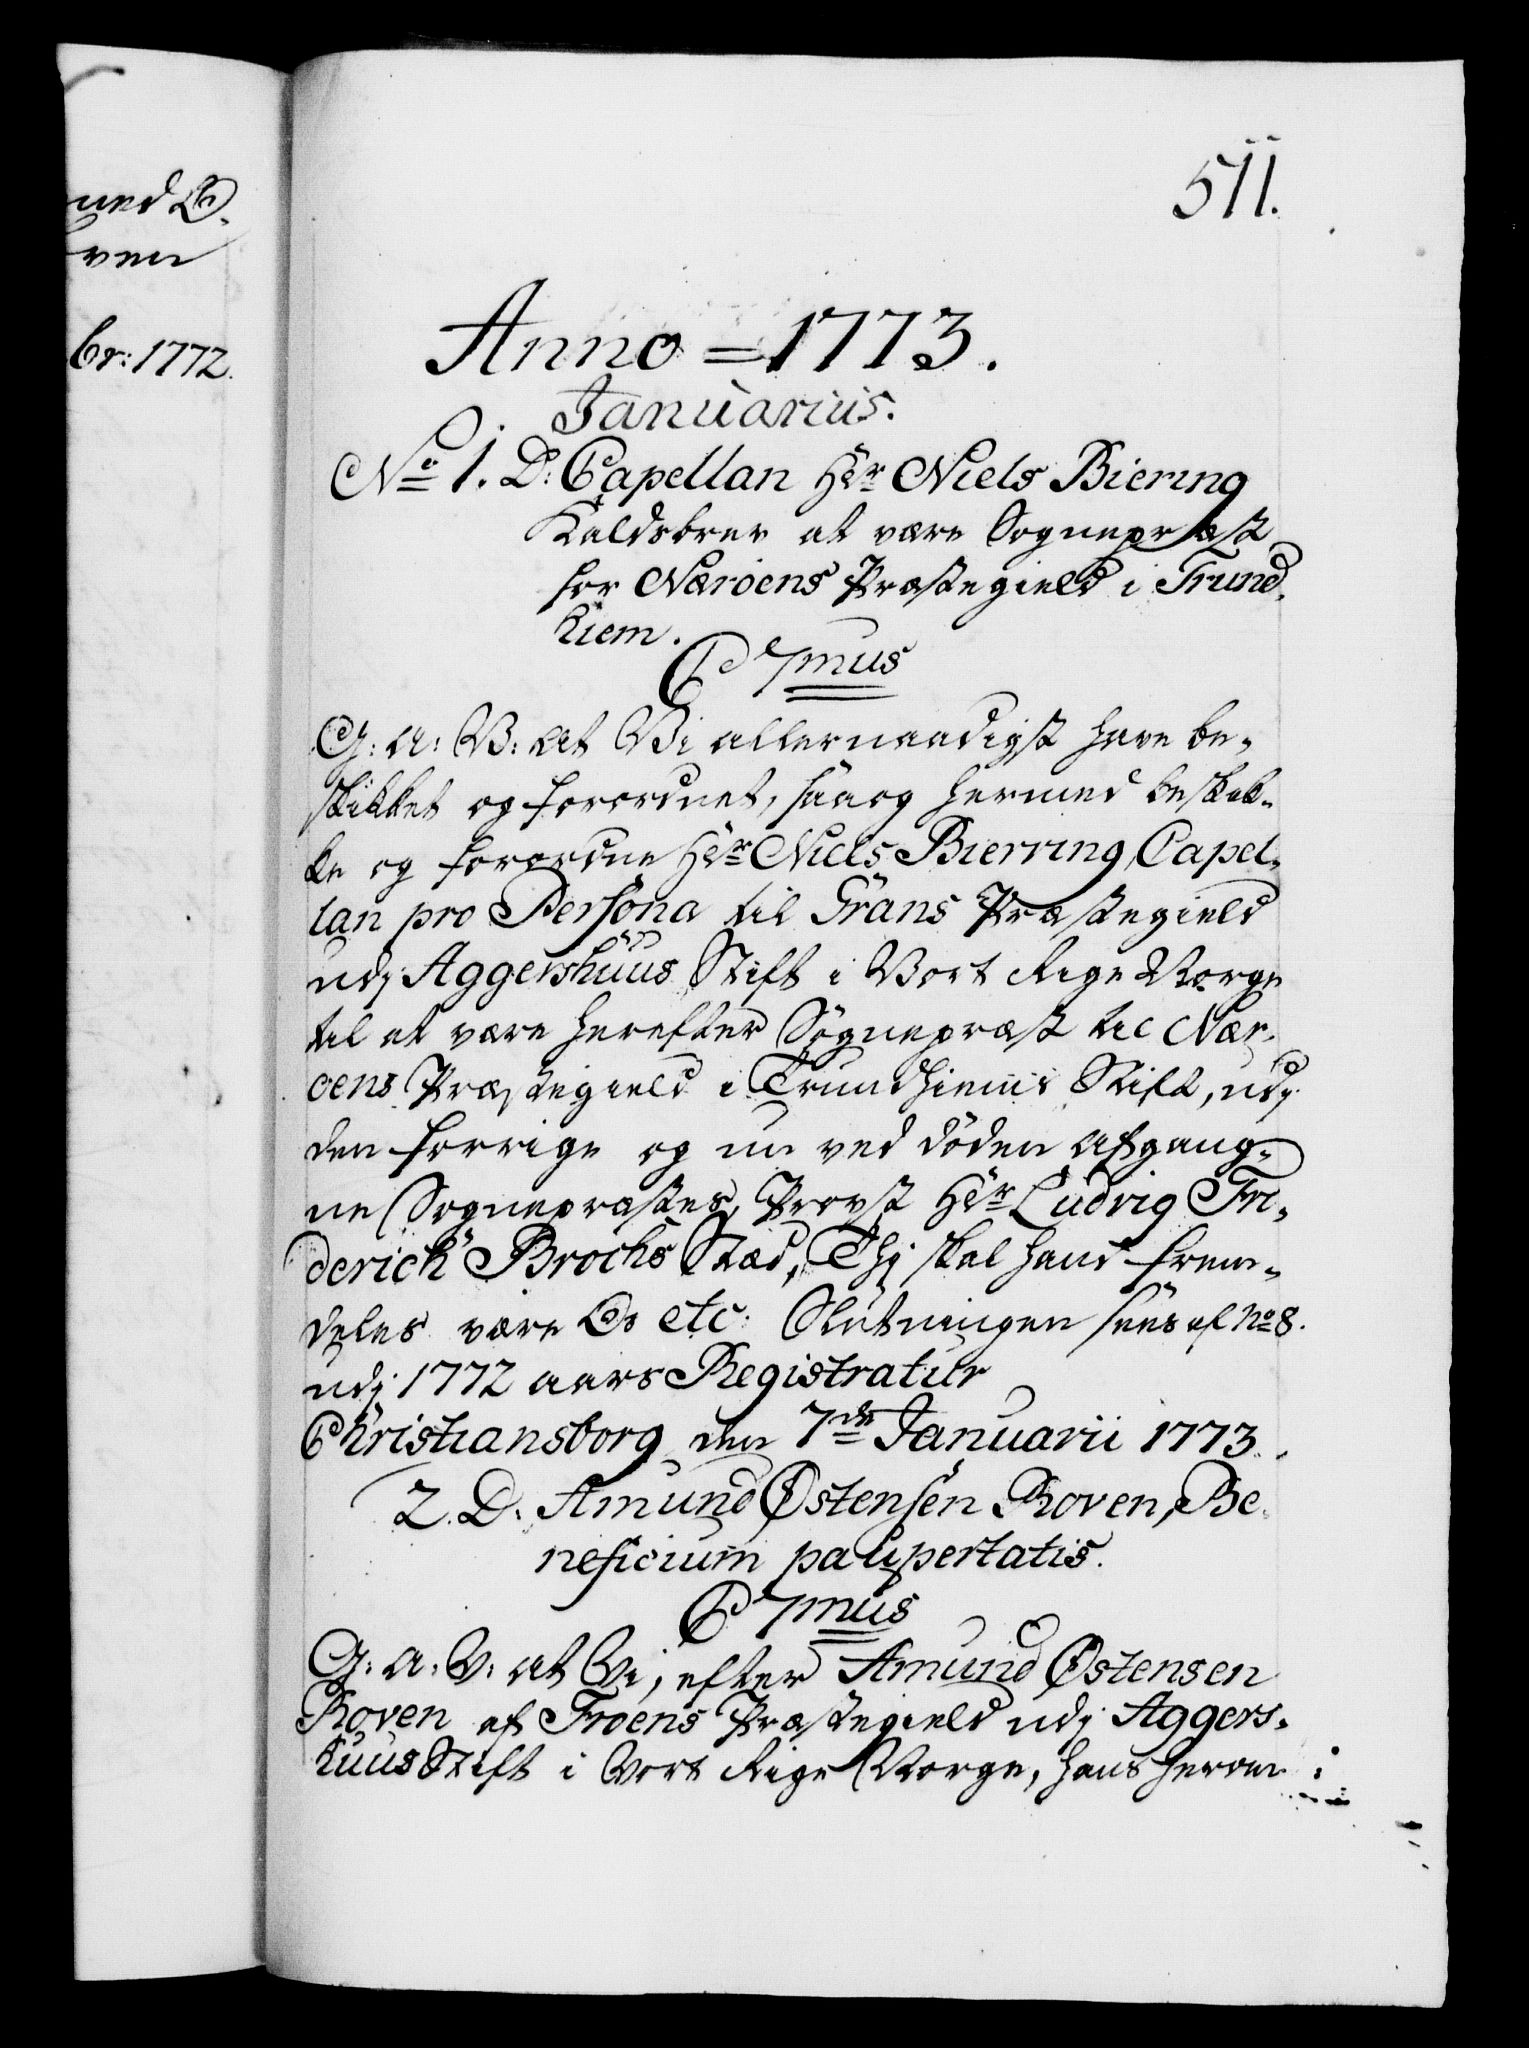 ned
ven
br: 1772.
511.
Anno = 1773.
Januarius.
No 1. D: Capellan Hr Niels Biering
Kaldsbrev at være Sognepræst
for Næröens Præstegield i Trund-
hiem.
C 7mus
G: A: V: At Vi allernaadigst have be-
skikket og forordnet, saa og hermed beskik-
ke og forordne Hr Niels Bierring, Capel-
lan pro Persona til Grans Præstegield
udj Aggershuus Stift i Vort Rige Norge
til at være herefter Sognepræst til Nær-
öens Præstegield i Trundhiems Stift, udj
den forrige og nu ved döden afgang-
ne Sognepræstes, Provst Hr Ludvig Fri-
derich Brochs Stæd, Thj skal hand frem-
deles være etc: Slutningen sees af No 8.
udj 1772 aars Registratur
Christiansborg den 7de Januarii 1773.
2. D: Amund Østensen Roven, Be-
neficium paupertatis.
C 7mus
G: A: V: at Vi, efter Amund Østensen
Roven af Froens Præstegield udj Aggers-
huus Stift i Vort Rige Norge, hans herom